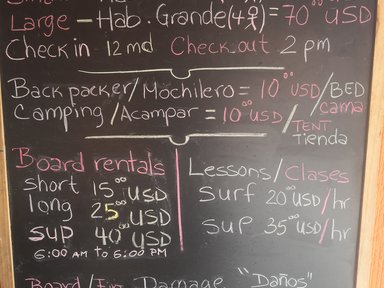 Large - Hab. Grande(4 ) = 70.00 USD
Check in 12 md Check out 2 pm
Back packer/Mochilero = 10.00 USD/BED cama
Camping/Acampar = 10.00 USD/TENT Tienda
Board rentals
short 15.00 USD
long 25.00 USD
SUP 40.00 USD
6:00 AM to 6:00 PM
Lessons/Clases
Surf 20.00 USD/hr
SUP 35.00 USD/hr
Board/Fin Damage "Daños"